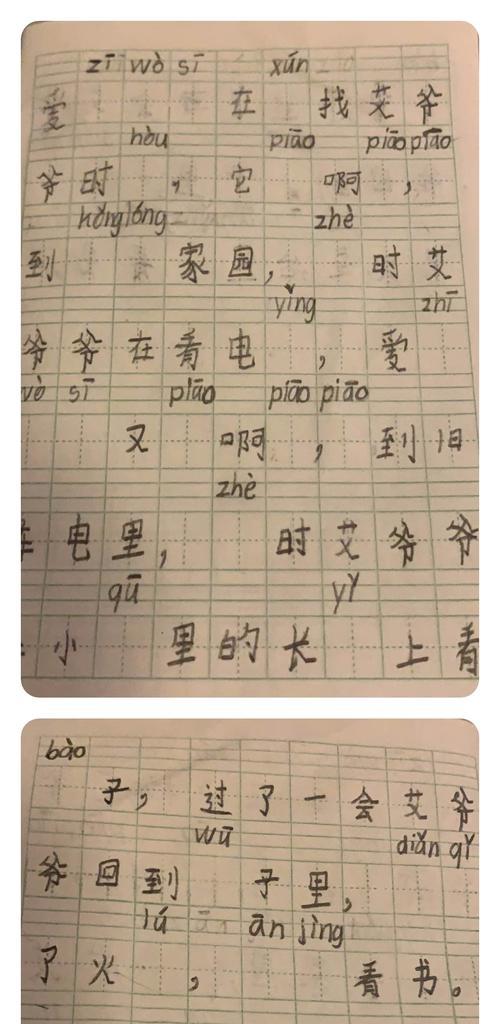 zī wò sī xún
爱 在 找 艾 爷
hòu piāo piāo piāo
爷 时 , 它 啊 ,
hōng lóng zhè
到 家 园, 时 艾
yǐng zhī
爷 爷 在 看 电 , 爱
wò sī piāo piāo piāo
又 啊 , 到 旧
zhè
电 里, 时 艾 爷 爷
qū yǐ
小 里 的 长 上 看
bào
子, 过 了 一 会 艾 爷
wū diǎn qǐ
爷 回 到 子 里,
lú ān jìng
了 火 , 看 书。